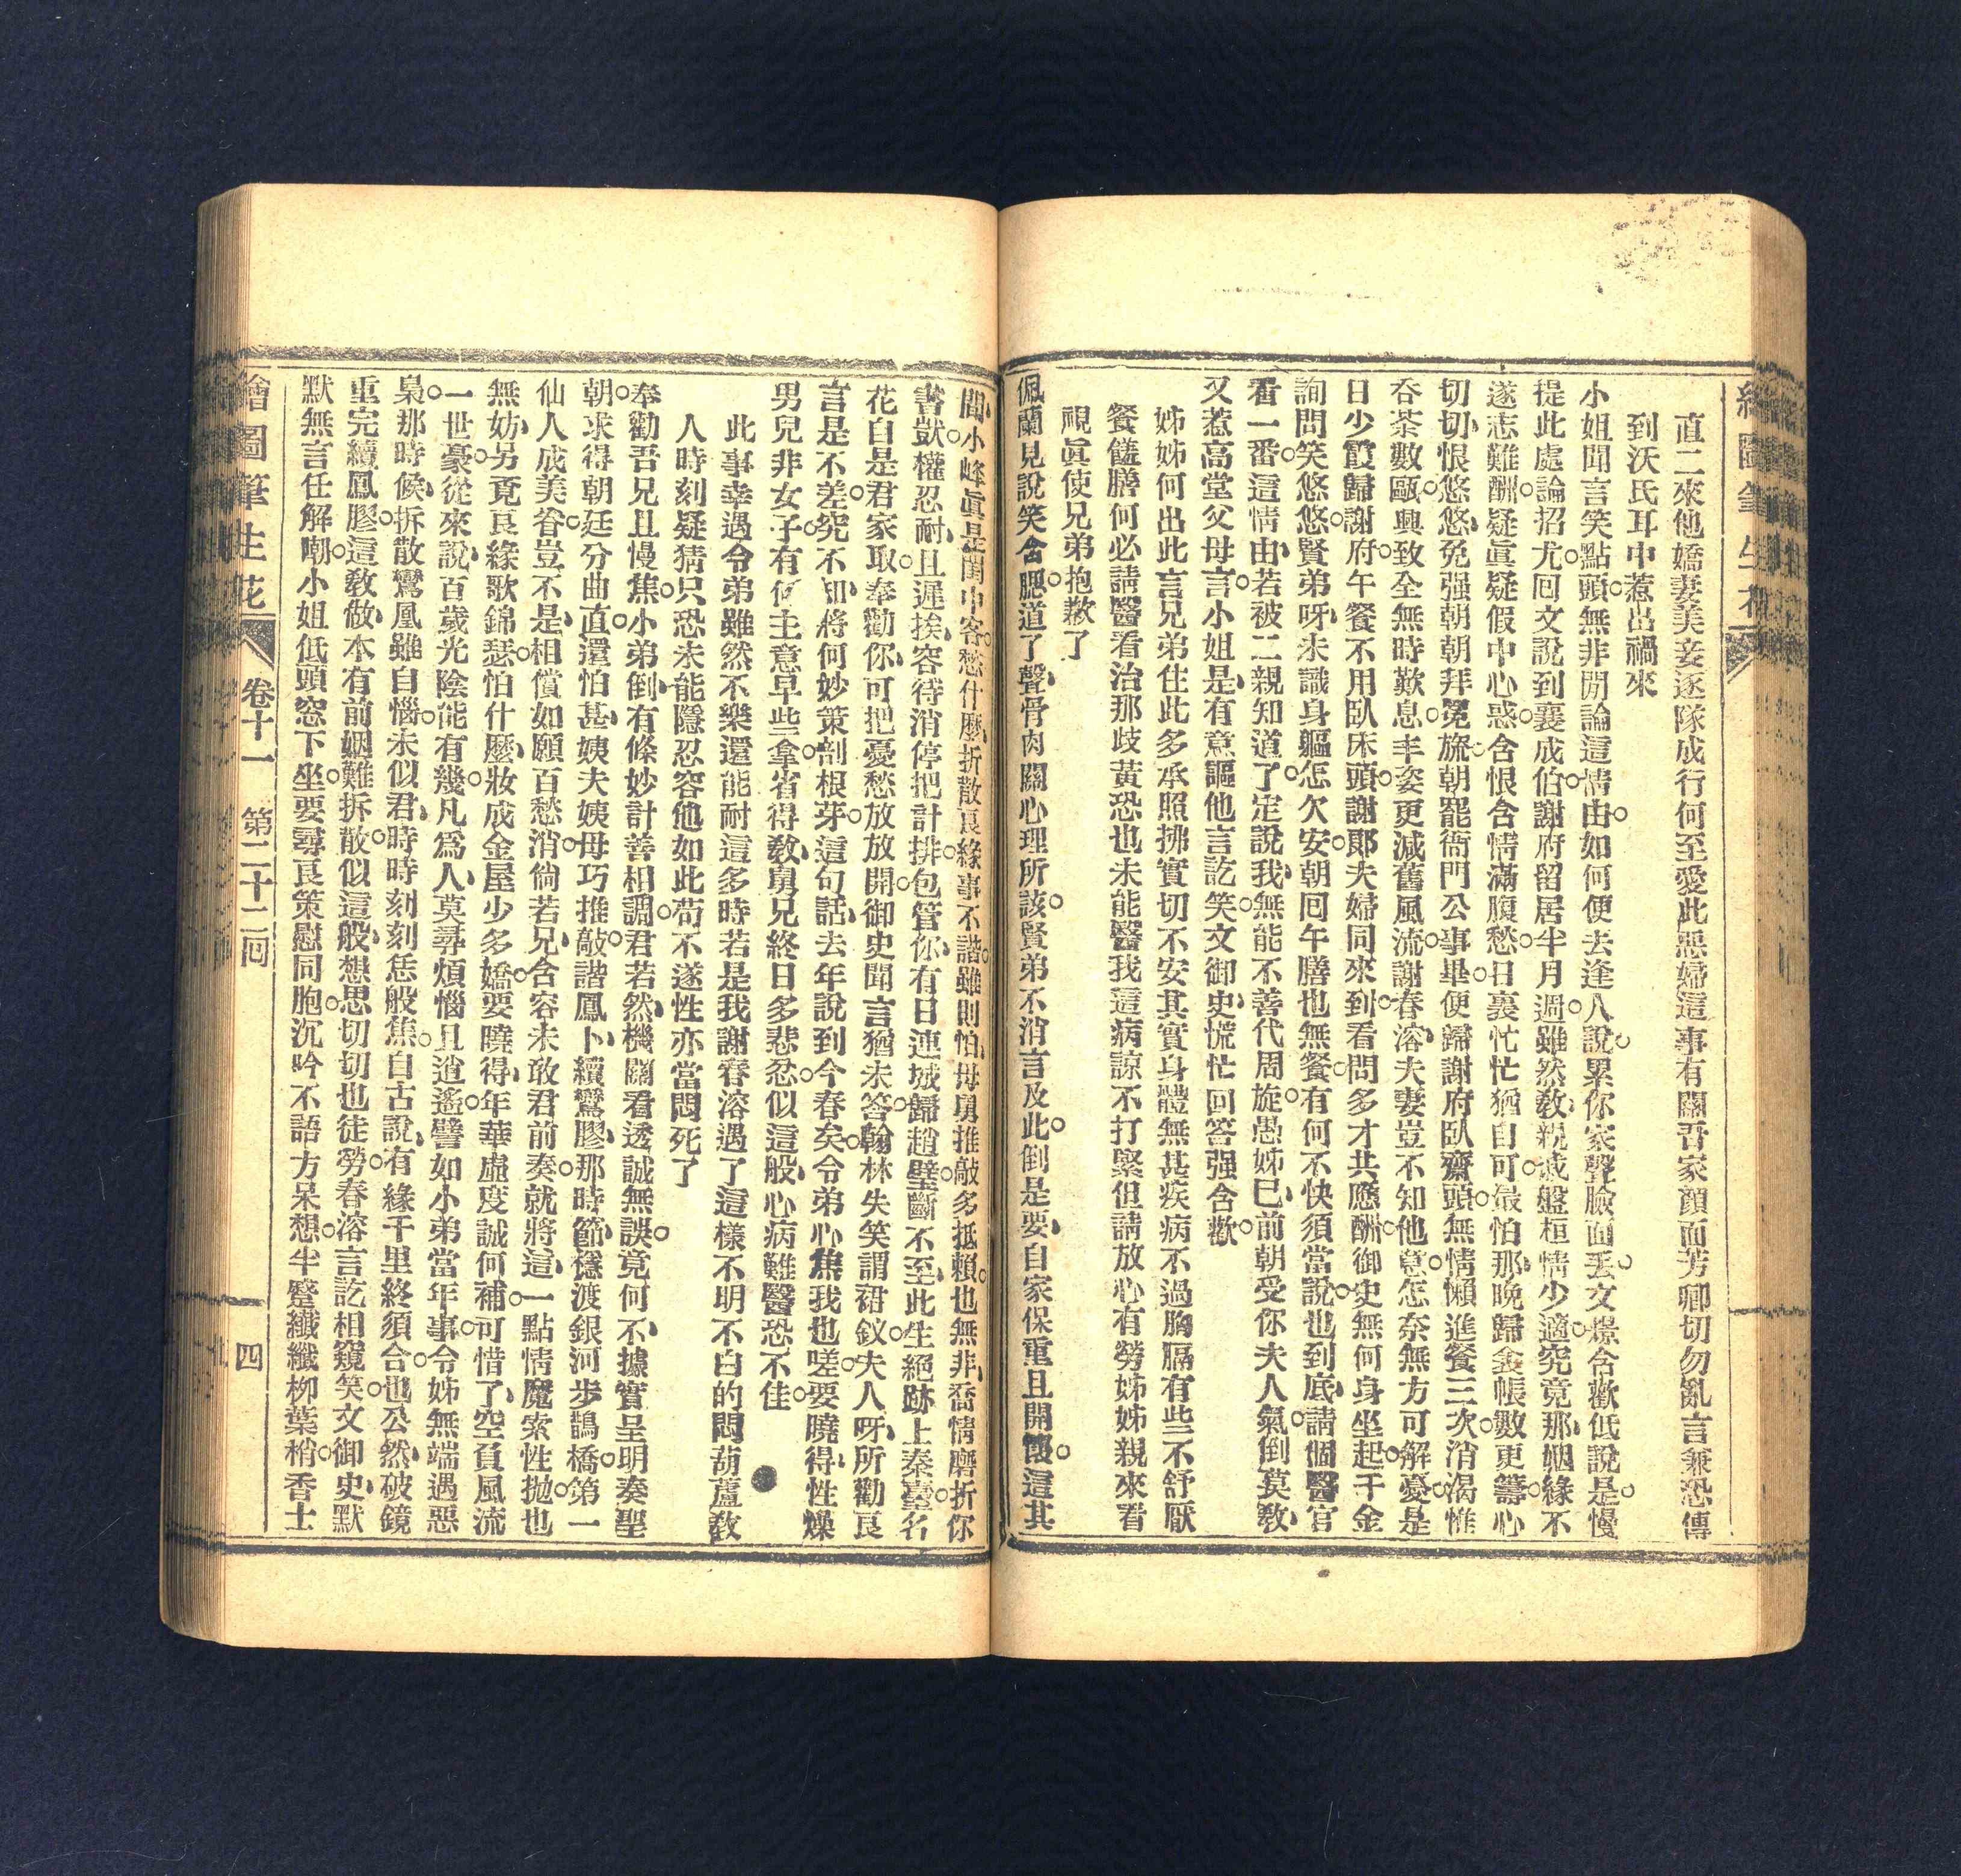 繪圖筆生花
直二來他嬌妻美妾逐隊成行何至愛此惡婦這事有關吾家顏面芳卿切勿亂言兼恐傳
到沃氏耳中惹出禍來
小姐聞言笑點頭無非閒論這情由如何便去逢人說累你家聲臉面丟文璟含歡低說是慢
提此處論招尤囘文說到襄成伯謝府留居半月週雖然敎親戚盤桓情少適究竟那姻緣不
遂志難酬疑眞疑假中心惑含恨含情滿腹愁日裏忙忙猶自可最怕那晚歸金帳數更籌心
切切恨悠悠免强朝朝拜冕旒朝罷衙門公事畢便歸謝府臥齋頭無情懶進餐三次消渴惟
吞茶數甌興致全無時歎息丰姿更減舊風流謝春溶夫妻豈不知他意怎奈無方可解憂是
日少霞歸謝府午餐不用臥床頭謝郞夫婦同來到看問多才共應酬御史無何身坐起千金
詢問笑悠悠賢弟呀未識身軀怎欠安朝囘午膳也無餐有何不快須當說也到底請個醫官
看一番這情由若被二親知道了定說我無能不善代周旋愚姊已前朝受你夫人氣倒莫敎
又惹高堂父母言小姐是有意謳他言訖笑文御史慌忙回答强含歡
姊姊何出此言兄弟住此多承照拂實切不安其實身體無甚疾病不過胸膈有些不舒厭
餐饈膳何必請醫看治那歧黃恐也未能醫我這病諒不打緊但請放心有勞姊姊親來看
視眞使兄弟抱歉了
佩蘭見說笑含腮道了聲骨肉關心理所該賢弟不消言及此倒是要自家保重且開懷這其
間小峰眞是閨中客愁什麼折散良緣事不諧雖則怕母舅推敲多抵賴也無非喬情磨折你
書獃權忍耐且遲挨容待消停把計排包管你有日連城歸趙璧斷不至此生絕跡上秦臺名
花自是君家取奉勸你可把憂愁放放開御史聞言猶未答翰林失笑謂裙釵夫人呀所勸良
言是不差究不知將何妙策剖根芽這句話去年說到今春矣令弟心焦我也嗟要曉得性燥
男兒非女子有何主意早些拿省得敎舅兄終日多悲忍似這般心病難醫恐不佳
此事幸遇令弟雖然不樂還能耐這多時若是我謝春溶遇了這樣不明不白的悶葫蘆敎
人時刻疑猜只恐未能隱忍容他如此苟不遂性亦當悶死了
奉勸吾兄且慢焦小弟倒有條妙計善相調君若然機關看透誠無誤竟何不據實呈明奏聖
朝求得朝廷分曲直還怕甚姨夫姨母巧推敲諧鳳卜續鸞膠那時節穩渡銀河步鵲橋第一
仙人成美眷豈不是相償如願百愁消倘若兄含容未敢君前奏就將這一點情魔索性拋也
無妨另覓良緣歌錦瑟怕什麼妝成金屋少多嬌要曉得年華虛度誠何補可惜了空負風流
一世豪從來說百歲光陰能有幾凡爲人莫尋煩惱且逍遙譬如小弟當年事令姊無端遇惡
梟那時候拆散鸞凰雖自惱未似君時時刻刻恁般焦自古說有緣千里終須合也公然破鏡
重完續鳳膠這敎做本有前姻難拆散似這般想思切切也徒勞春溶言訖相窺笑文御史默
默無言任解嘲小姐低頭窓下坐要尋良策慰同胞沉吟不語方呆想半蹙纖纖柳葉梢香士
繪圖筆生花 卷十一 第二十二囘 四